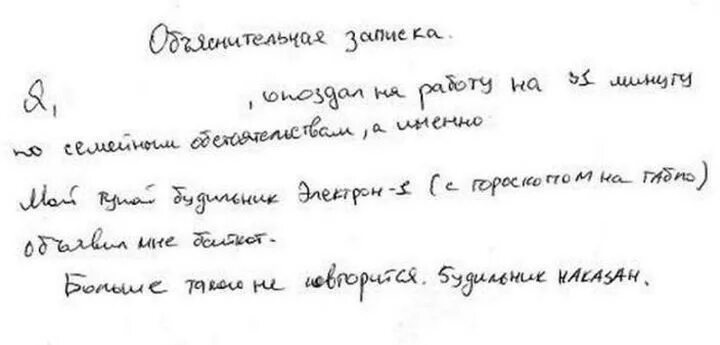 Объяснительная записка.
Я, , опоздал на работу на 31 минуту
по семейным обстоятельствам, а именно
Мой тупой будильник Электрон-1 (с гороскопом на табло)
объявил мне бойкот.
Больше такого не повторится. Будильник НАКАЗАН.